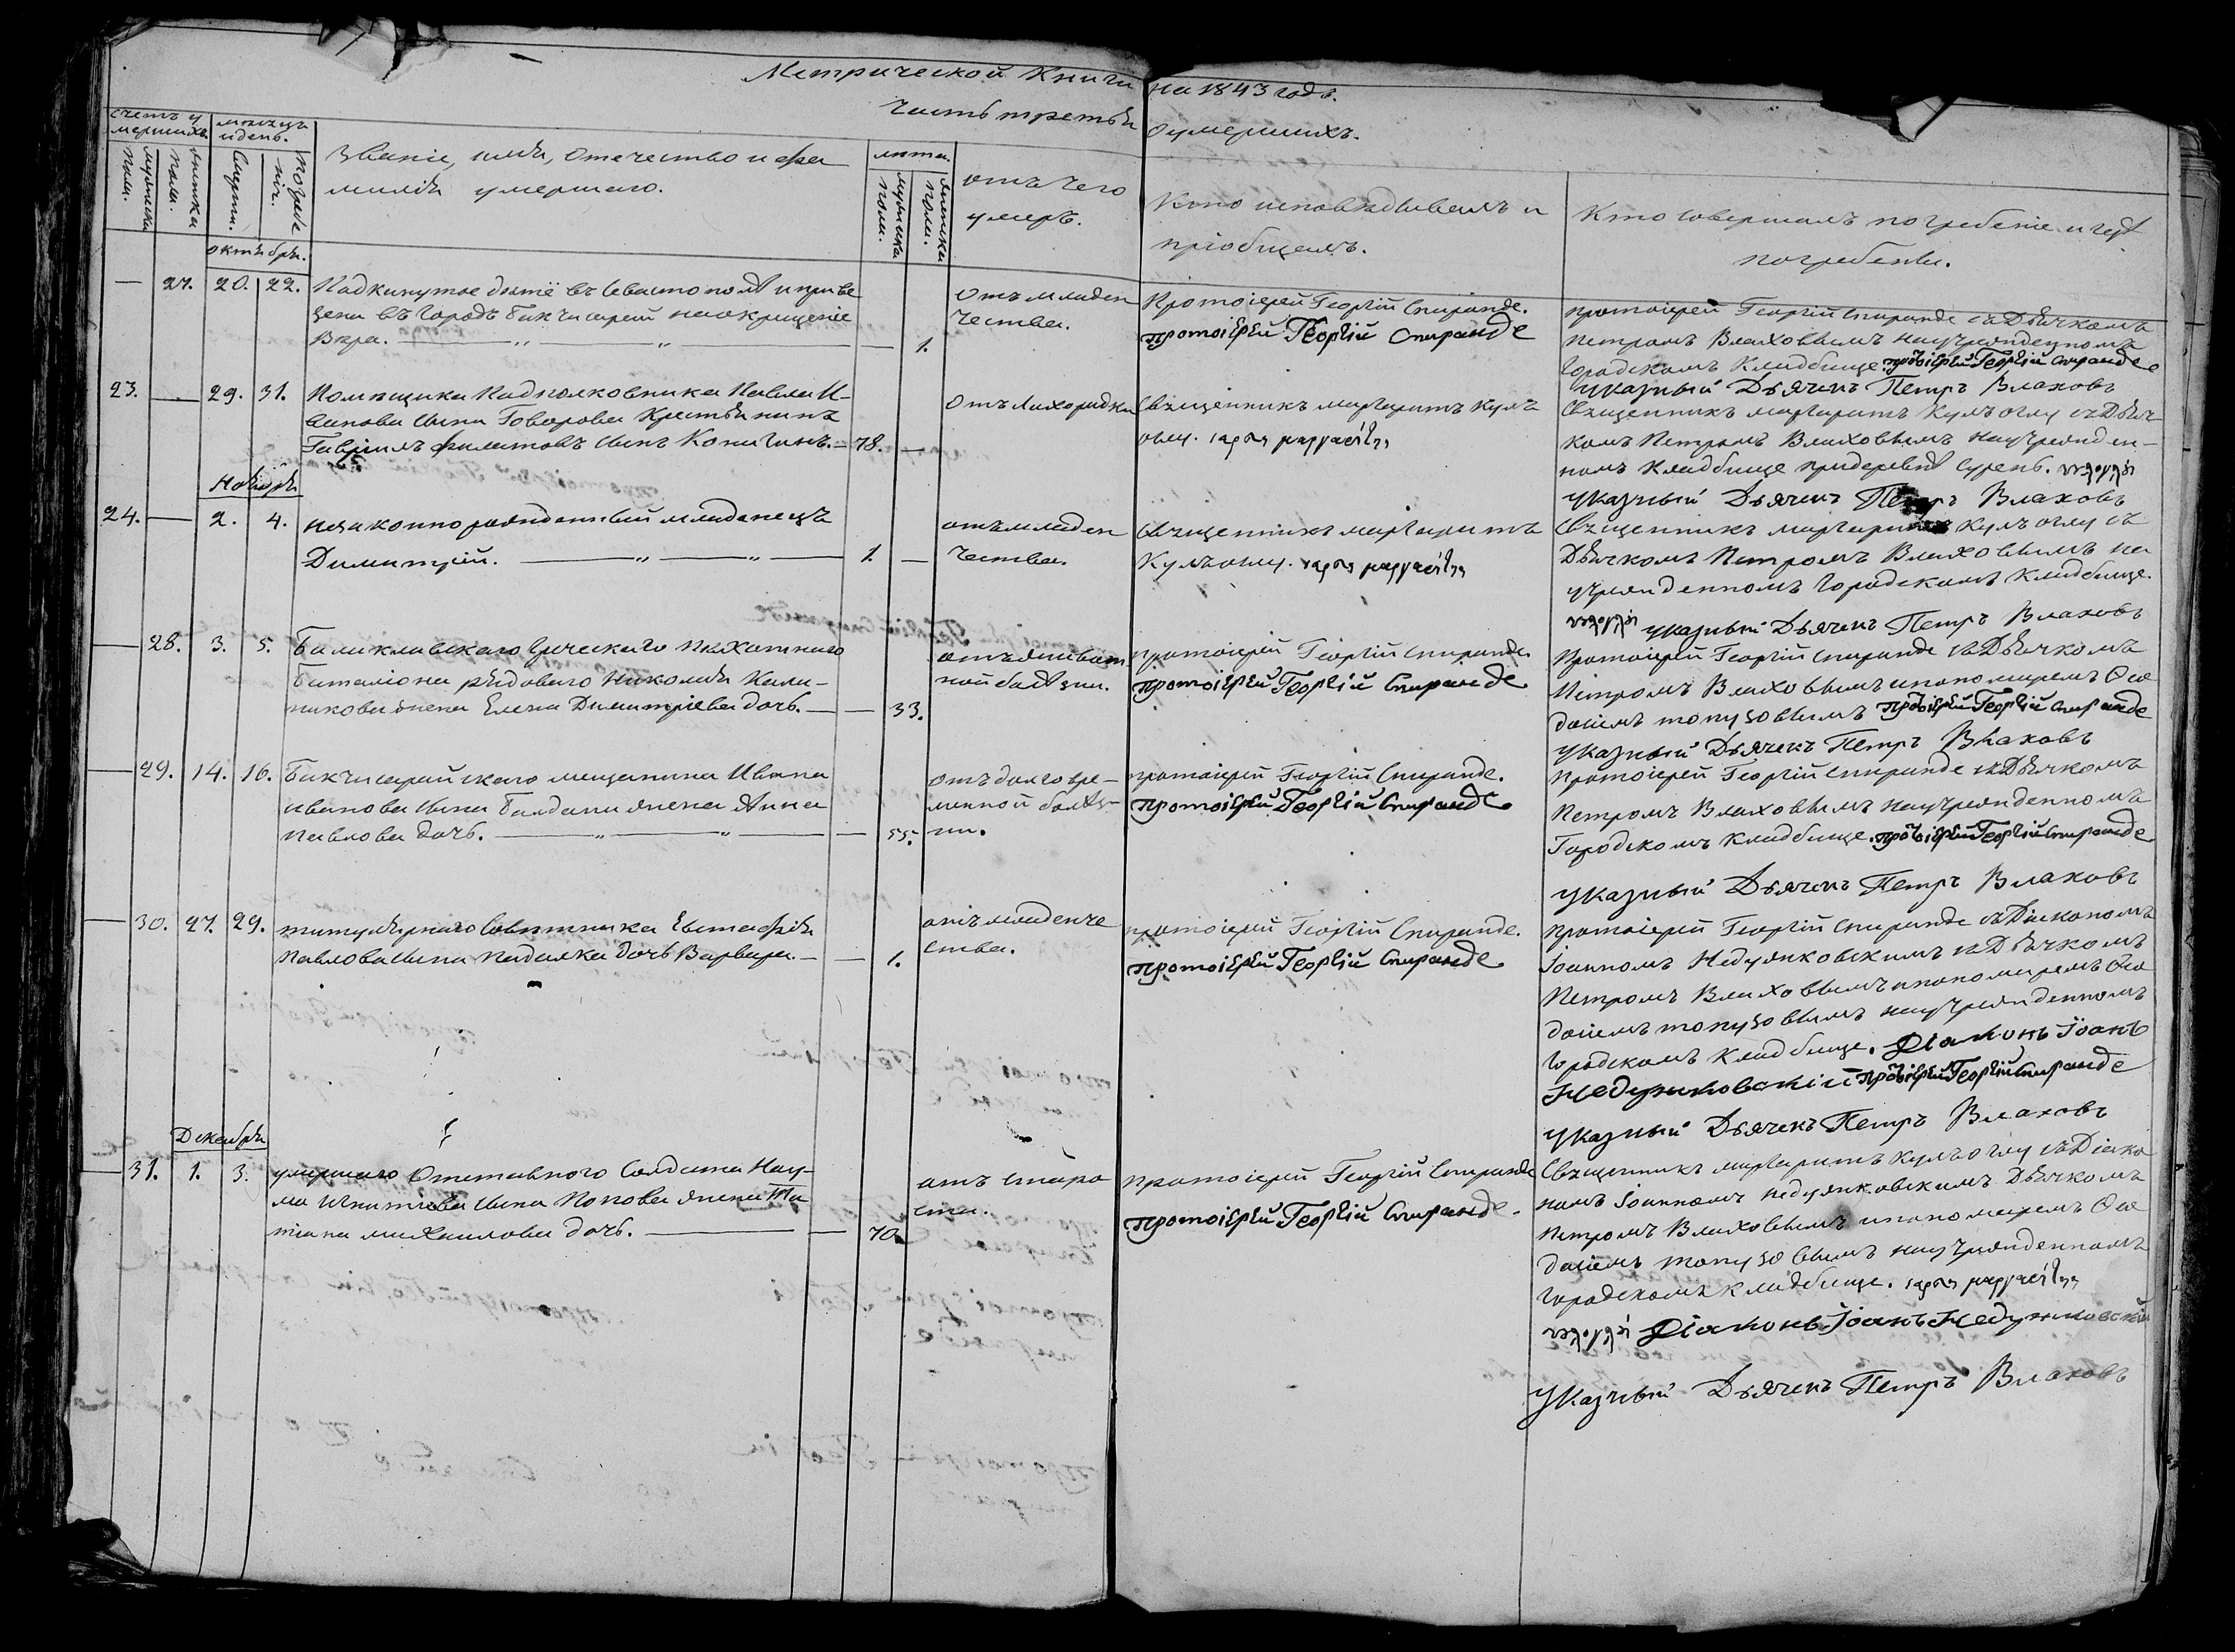 Метрической Книги на 1843 годъ.
Часть третья о умершихъ.
Счетъ умершихъ
мужеска полу.
женска полу.
мѣсяцъ и день.
Смерти.
Погребенія.
Званіе, имя, отечество и фамилія умершаго.
лѣта.
мужеска полу.
женска полу.
отъ чего умеръ.
Кто исповѣдывалъ и пріобщалъ.
Кто совершалъ погребеніе и гдѣ погребены.
октября.
— 27. 20. 22.
Подкинутое дитё въ Севастополѣ и привезена въ Городъ Бакчисарай на окрещеніе
Вѣра. — 1.
Отъ младенчества.
Протоіерей Георгій Спиранде.
протоіерей Георгій Спиранде
протоіерей Георгій Спиранде съ Дьячкомъ
Петромъ Влаховымъ на учрежденномъ
Городскомъ Кладбище. протоіерей Георгій Спиранде
Указный Дьячекъ Петръ Влаховъ
23. — 29. 31.
Помѣщика Подполковника Павла И-
ванова сына Говорова Крестьянинъ
Гавріилъ Филатовъ сынъ Копичинъ. — 78. —
Отъ лихорадки
Священникъ Маргаритъ Кулъ
оглу. ιερευς μαργαρίτης
Священникъ Маргаритъ Кулъ оглу съ Дьяч-
комъ Петромъ Влаховымъ на учрежден-
номъ Кладбище при деревнѣ Сурень. κουλογλού
Указный Дьячекъ Петръ Влаховъ
Ноября
24. — 2. 4.
незаконнорожденный младенецъ
Димитрій. — 1. —
отъ младенчества.
Священникъ Маргаритъ
Кулъ оглу. ιερευς μαργαρίτης
Священникъ Маргаритъ Кулъ оглу съ
Дьячкомъ Петромъ Влаховымъ на
учрежденномъ Городскомъ Кладбище.
κουλογλού Указный Дьячекъ Петръ Влаховъ
— 28. 3. 5.
Балаклавскаго Греческаго пѣхотнаго
Баталіона рядоваго Николая Кали-
никова жена Елена Димитріева дочь. — 33.
протоіерей Георгій Спиранде
протоіерей Георгій Спиранде
Протоіерей Георгій Спиранде съ Дьячкомъ
Петромъ Влаховымъ и пономаремъ Ѳео
досіемъ Топузовымъ протоіерей Георгій Спиранде
Указный Дьячекъ Петръ Влаховъ
— 29. 14. 16.
Бакчисарайскаго мещанина Ивана
Иванова сына Балдани жена Анна
Павлова дочь. — 55.
отъ долговре-
менной болѣз-
ни.
протоіерей Георгій Спиранде.
протоіерей Георгій Спиранде
протоіерей Георгій Спиранде съ Дьячкомъ
Петромъ Влаховымъ на учрежденномъ
Городскомъ Кладбище. протоіерей Георгій Спиранде
Указный Дьячекъ Петръ Влаховъ
— 30. 27. 29.
титулярнаго Совѣтника Евстафія
Павлова сына Падалка дочь Варвара. — 1.
отъ младенче
ства.
протоіерей Георгій Спиранде.
протоіерей Георгій Спиранде
протоіерей Георгій Спиранде съ Діякономъ
Іоанномъ Недужковскимъ съ Дьячкомъ
Петромъ Влаховымъ и пономаремъ Ѳео
досіемъ Топузовымъ на учрежденномъ
Городскомъ Кладбище. Діаконъ Іоанъ
Недужковскій протоіерей Георгій Спиранде
Указный Дьячекъ Петръ Влаховъ
Декабря
— 31. 1. 3.
умершаго Отставного Солдата Нау-
ма Игнатіева сына Попова жена Та
тіана Михаилова дочь. — 70.
отъ старо
сти.
протоіерей Георгій Спиранде
протоіерей Георгій Спиранде.
Священникъ Маргаритъ Кулъ оглу съ Діако
номъ Іоанномъ Недужковскимъ Дьячкомъ
Петромъ Влаховымъ и пономаремъ Ѳео
досіемъ Топузовымъ на учрежденномъ
Городскомъ Кладбище. ιερευς μαργαρίτης
κουλογλού Діаконъ Іоанъ Недужковскій
Указный Дьячекъ Петръ Влаховъ